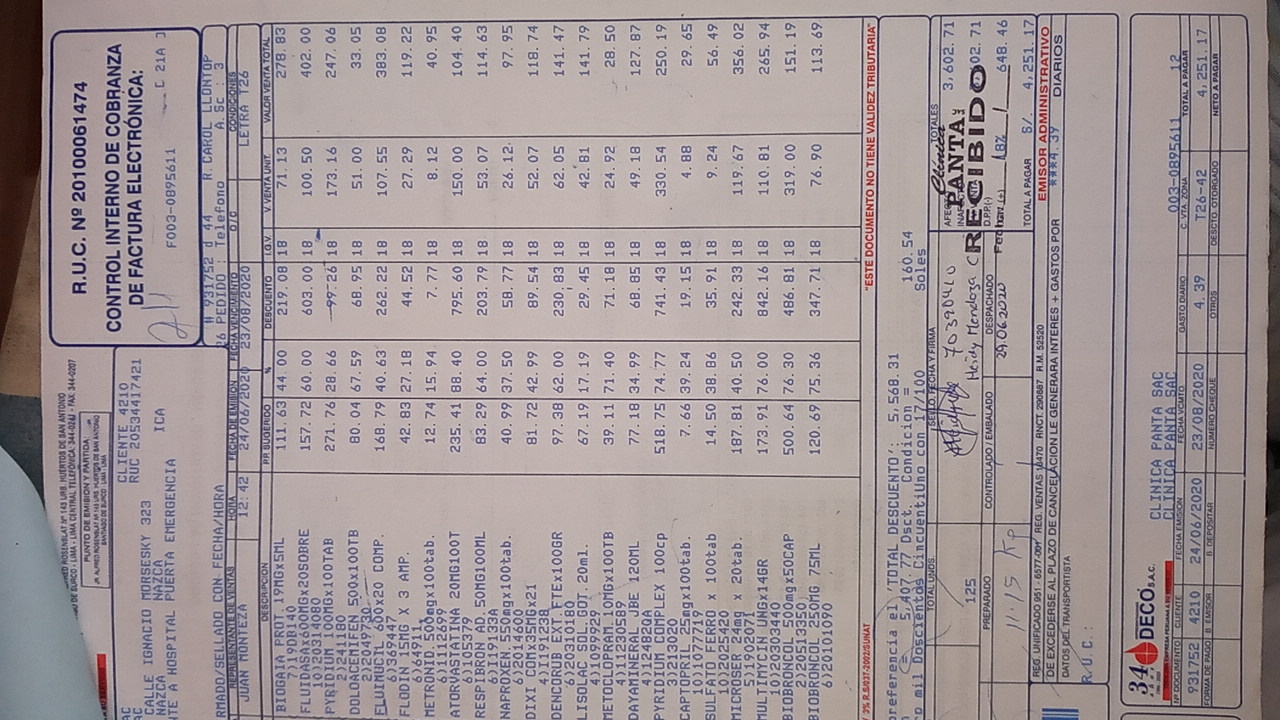 R.U.C. Nº 20100061474
CONTROL INTERNO DE COBRANZA
DE FACTURA ELECTRÓNICA:
F003-0895611 C 21A
CLIENTE 4210
RUC 20534417421
CALLE IGNACIO MORSESKY 323
NAZCA
NAZCA ICA
A HOSPITAL PUERTA EMERGENCIA
# 931752 d 44 R.CAROL LLONTOP
26 PEDIDO : Telefono A.Sc : 3
RMADO/SELLADO CON FECHA/HORA
REPRESENTANTE DE VENTAS HORA FECHA DE EMISIÓN FECHA VENCIMIENTO O/C CONDICIONES
JUAN MONTEZA 12:42 24/06/2020 23/08/2020 LETRA T26
DESCRIPCIÓN P.P. SUGERIDO % DESCUENTO I.G.V. V. VENTA UNIT. VALOR VENTA TOTAL
BIOGAIA PROT 19MGx5ML 111.63 44.00 219.08 18 71.13 278.83
7)19DB140
FLUIDASA×600MGx20SOBRE 157.72 60.00 603.00 18 100.50 402.00
10)20314080
PYRIDIUM 100MGx100TAB 271.76 28.66 99.26 18 173.16 247.06
2)241180
DOLOACEMIFEN 500x100TB 80.04 67.59 68.95 18 51.00 33.05
FLUIMUCIL 600x20 COMP. 168.79 40.63 262.22 18 107.55 383.08
FLODIN 15MG X 3 AMP. 42.83 27.18 44.52 18 27.29 119.22
METRONID.500mgx100tab. 12.74 15.94 7.77 18 8.12 40.95
6)1112699
ATORVASTATINA 20MG100T 235.41 88.40 795.60 18 150.00 104.40
6)105379
RESPIBRON AD.50MG100ML 83.29 64.00 203.79 18 53.07 114.63
NAPROXEN 550mgx100tab. 40.99 37.50 58.77 18 26.12 97.95
DIXI COM×35MGx21 81.72 42.99 89.54 18 52.07 118.74
4)I191238
DENCORUB EXT FTEx100GR 97.38 62.00 230.83 18 62.05 141.47
6)20310180
LISOLAC SOL GOT.20ml. 67.19 17.17 29.45 18 42.81 141.79
4)1099929
METOCLOPRAM.10MGx100TB 39.11 71.40 71.18 18 24.92 28.50
4)11230589
DAYAMINERAL JBE 120ML 77.18 34.99 68.85 18 49.18 127.87
PYRIDIUM COMPLEX 100cp 518.75 74.77 741.43 18 330.54 250.19
CAPTOPRIL 25mgx100tab. 7.66 39.24 19.15 18 4.88 29.65
6)1077719
SULFATO FERRO x 100tab 14.50 38.86 35.91 18 9.24 56.49
10)2025429
MICROSER 24mg x 20tab. 187.81 40.50 242.33 18 119.67 356.02
MULTIMYCIN UNGx14GR 173.91 76.00 842.16 18 110.81 265.94
10)20303440
BIOBRONCOL 500mgx50CAP 500.64 76.30 486.81 18 319.00 151.19
2)20513350
BIOBRONCOL 250MG 75ML 120.69 75.36 347.71 18 76.90 113.69
6)20101090
"ESTE DOCUMENTO NO TIENE VALIDEZ TRIBUTARIA"
preferencia el 'TOTAL DESCUENTO': 5,568.31 160.54
5,407.77 Dsct. Condicion = Soles
mil Doscientos CincuentiUno con 17/100
TOTAL UNDS. SELLO, FECHA Y FIRMA TOTALES
125 3,602.71
Clínica
PANTA
RECIBIDO
70392420
Heidy Mendoza C
PREPARADO CONTROLADO / EMBALADO DESPACHADO
11:15 29.06.2020 18% 648.46
TOTAL A PAGAR S/. 4,251.17
REG. UNIFICADO 951 REG. VENTAS RNCT. 290887 R.M. 52520 EMISOR ADMINISTRATIVO
DE EXCEDERSE AL PLAZO DE CANCELACION LE GENERARA INTERES + GASTOS POR 4.39 DIARIOS
DATOS DEL TRANSPORTISTA
R.U.C.:
34 DECO S.A.C.
CLINICA PANTA SAC
CLINICA PANTA SAC
003-0895611 12
Nº DOCUMENTO CLIENTE FECHA EMISIÓN FECHA VCMTO GASTO DIARIO C. VTA. ZONA TOTAL A PAGAR
931752 4210 24/06/2020 23/08/2020 4.39 T26-42 4,251.17
FORMA DE PAGO B. EMISOR B. DEPOSITAR NUMERO CHEQUE OTROS DESCTO. OTORGADO NETO A PAGAR